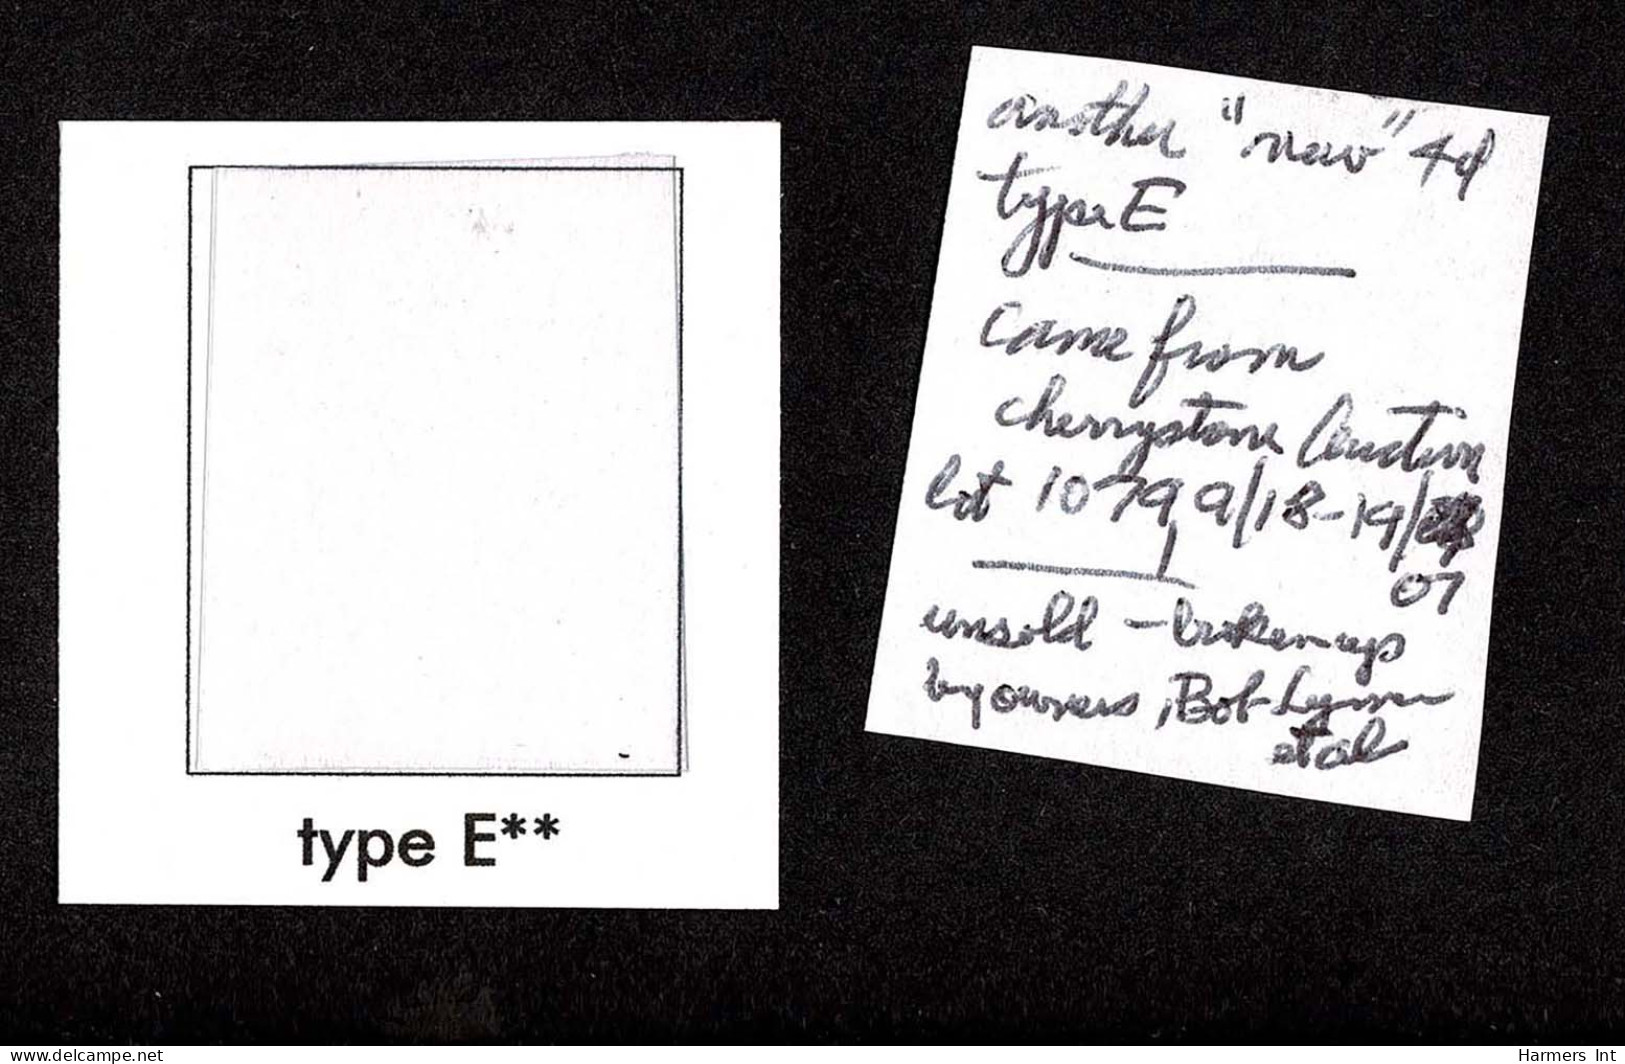 another "new" 4d
type E
came from
cherrystone Auction
lot 1079, 9/18-19/
07
unsold - broken up
by owners, Bob Lyman
et al
type E**
Harmers Int